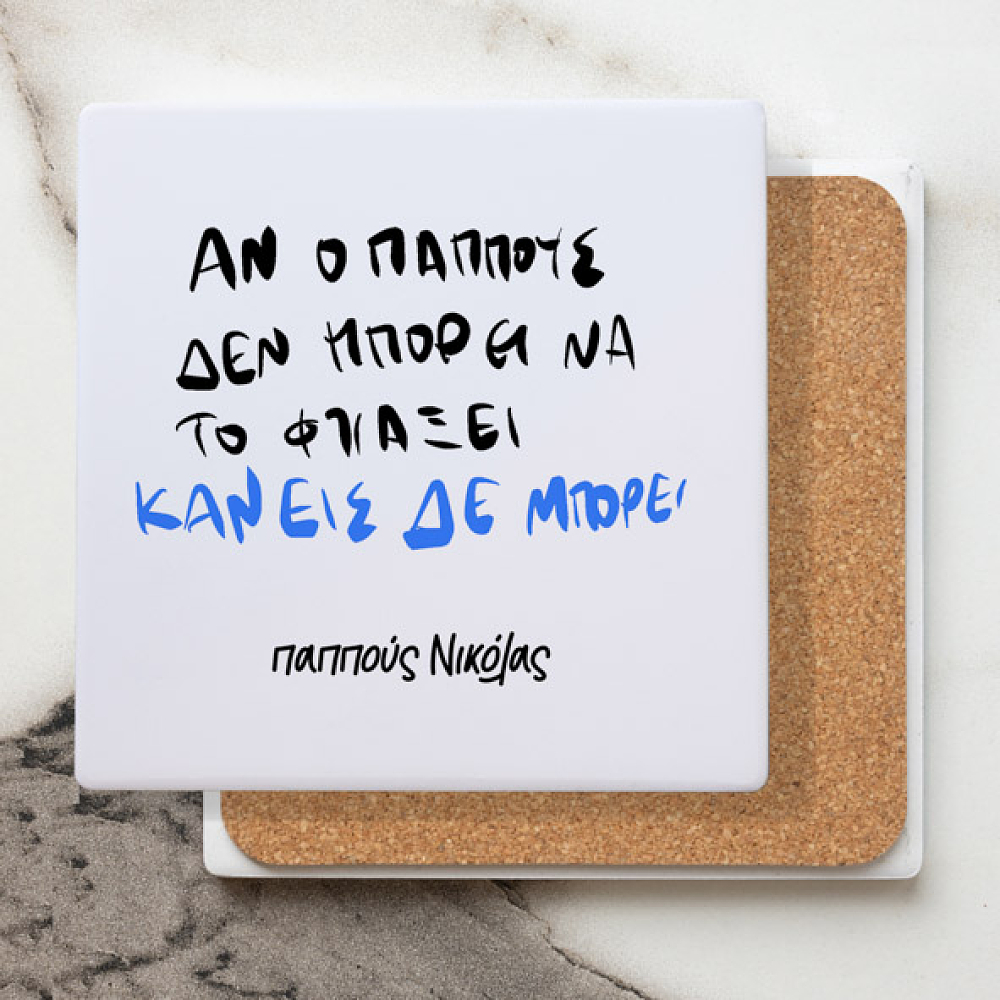 ΑΝ Ο ΠΑΠΠΟΥΣ
ΔΕΝ ΜΠΟΡΕΙ ΝΑ
ΤΟ ΦΤΙΑΞΕΙ
ΚΑΝΕΙΣ ΔΕ ΜΠΟΡΕΙ
παππούς Νικόλας